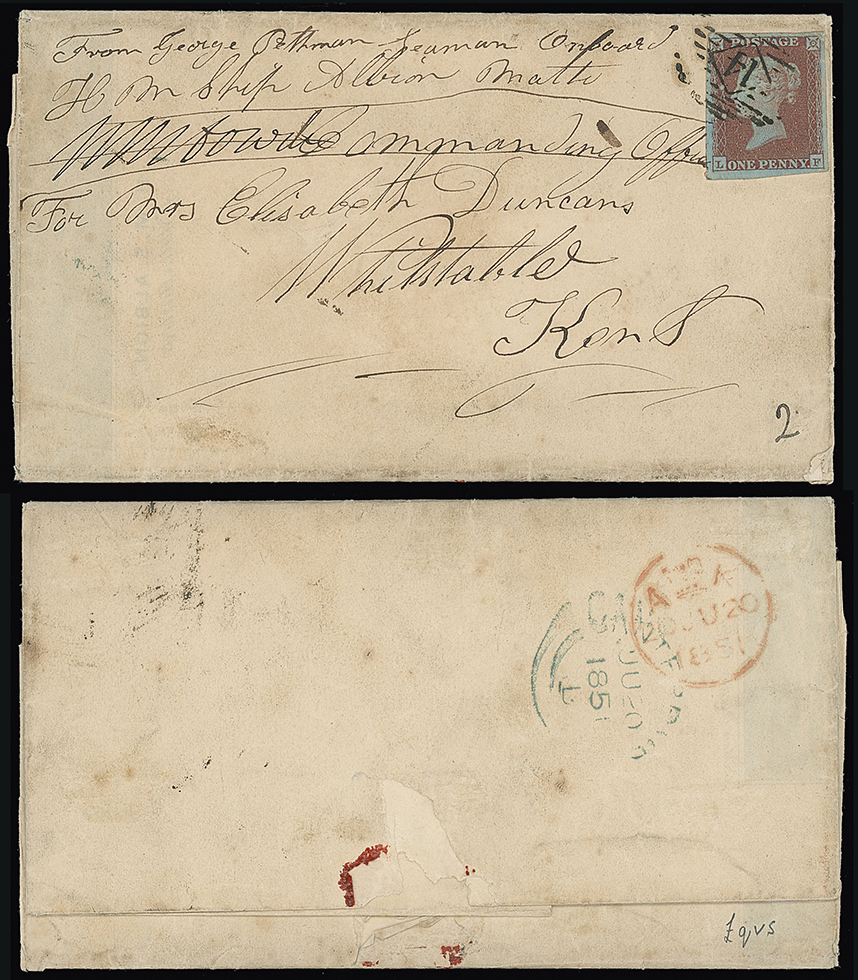 From George Pettman Seaman Onboard
H M Ship Albion Malta
Commanding Office
For Mrs Elisabeth Duncans
Whitstable
Kent
2
POSTAGE
L ONE PENNY. F
JU 20
1851
JU 20
1851
£qvs